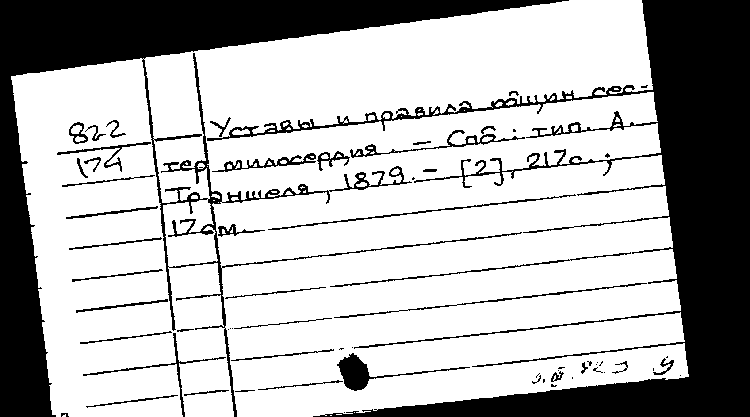 822
174
Уставы и правила общин сес-
тер милосердия. — Спб.: тип. А.
Траншеля, 1879. — [2], 217с.;
17см.